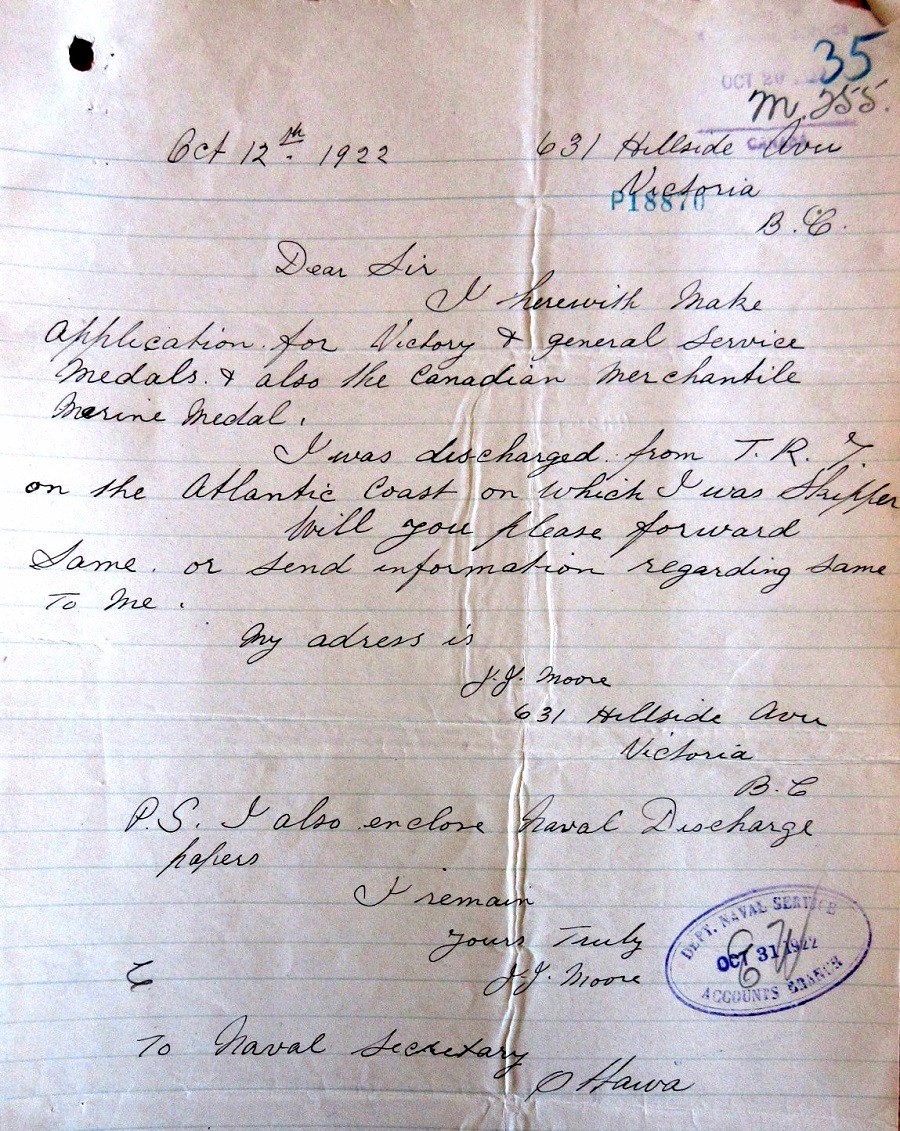 35
OCT 20
M. 255.
CANADA
Oct 12th 1922 631 Hillside Avu
Victoria
P18870
B.C.
Dear Sir
I herewith Make
Application for Victory & general Service
Medals. & also the Canadian Merchantile
Marine Medal.
I was discharged from T. R. 7
on the Atlantic Coast on which I was Skipper
Will you please forward
Same. or send information regarding same
To Me.
My adress is
J.J. Moore
631 Hillside Avu
Victoria
B.C
P.S. I also enclose Naval Discharge
papers
I remain
yours Truly
J.J. Moore
DEPT. NAVAL SERVICE
OCT 31 1922
ACCOUNTS BRANCH
To Naval Secretary
Ottawa